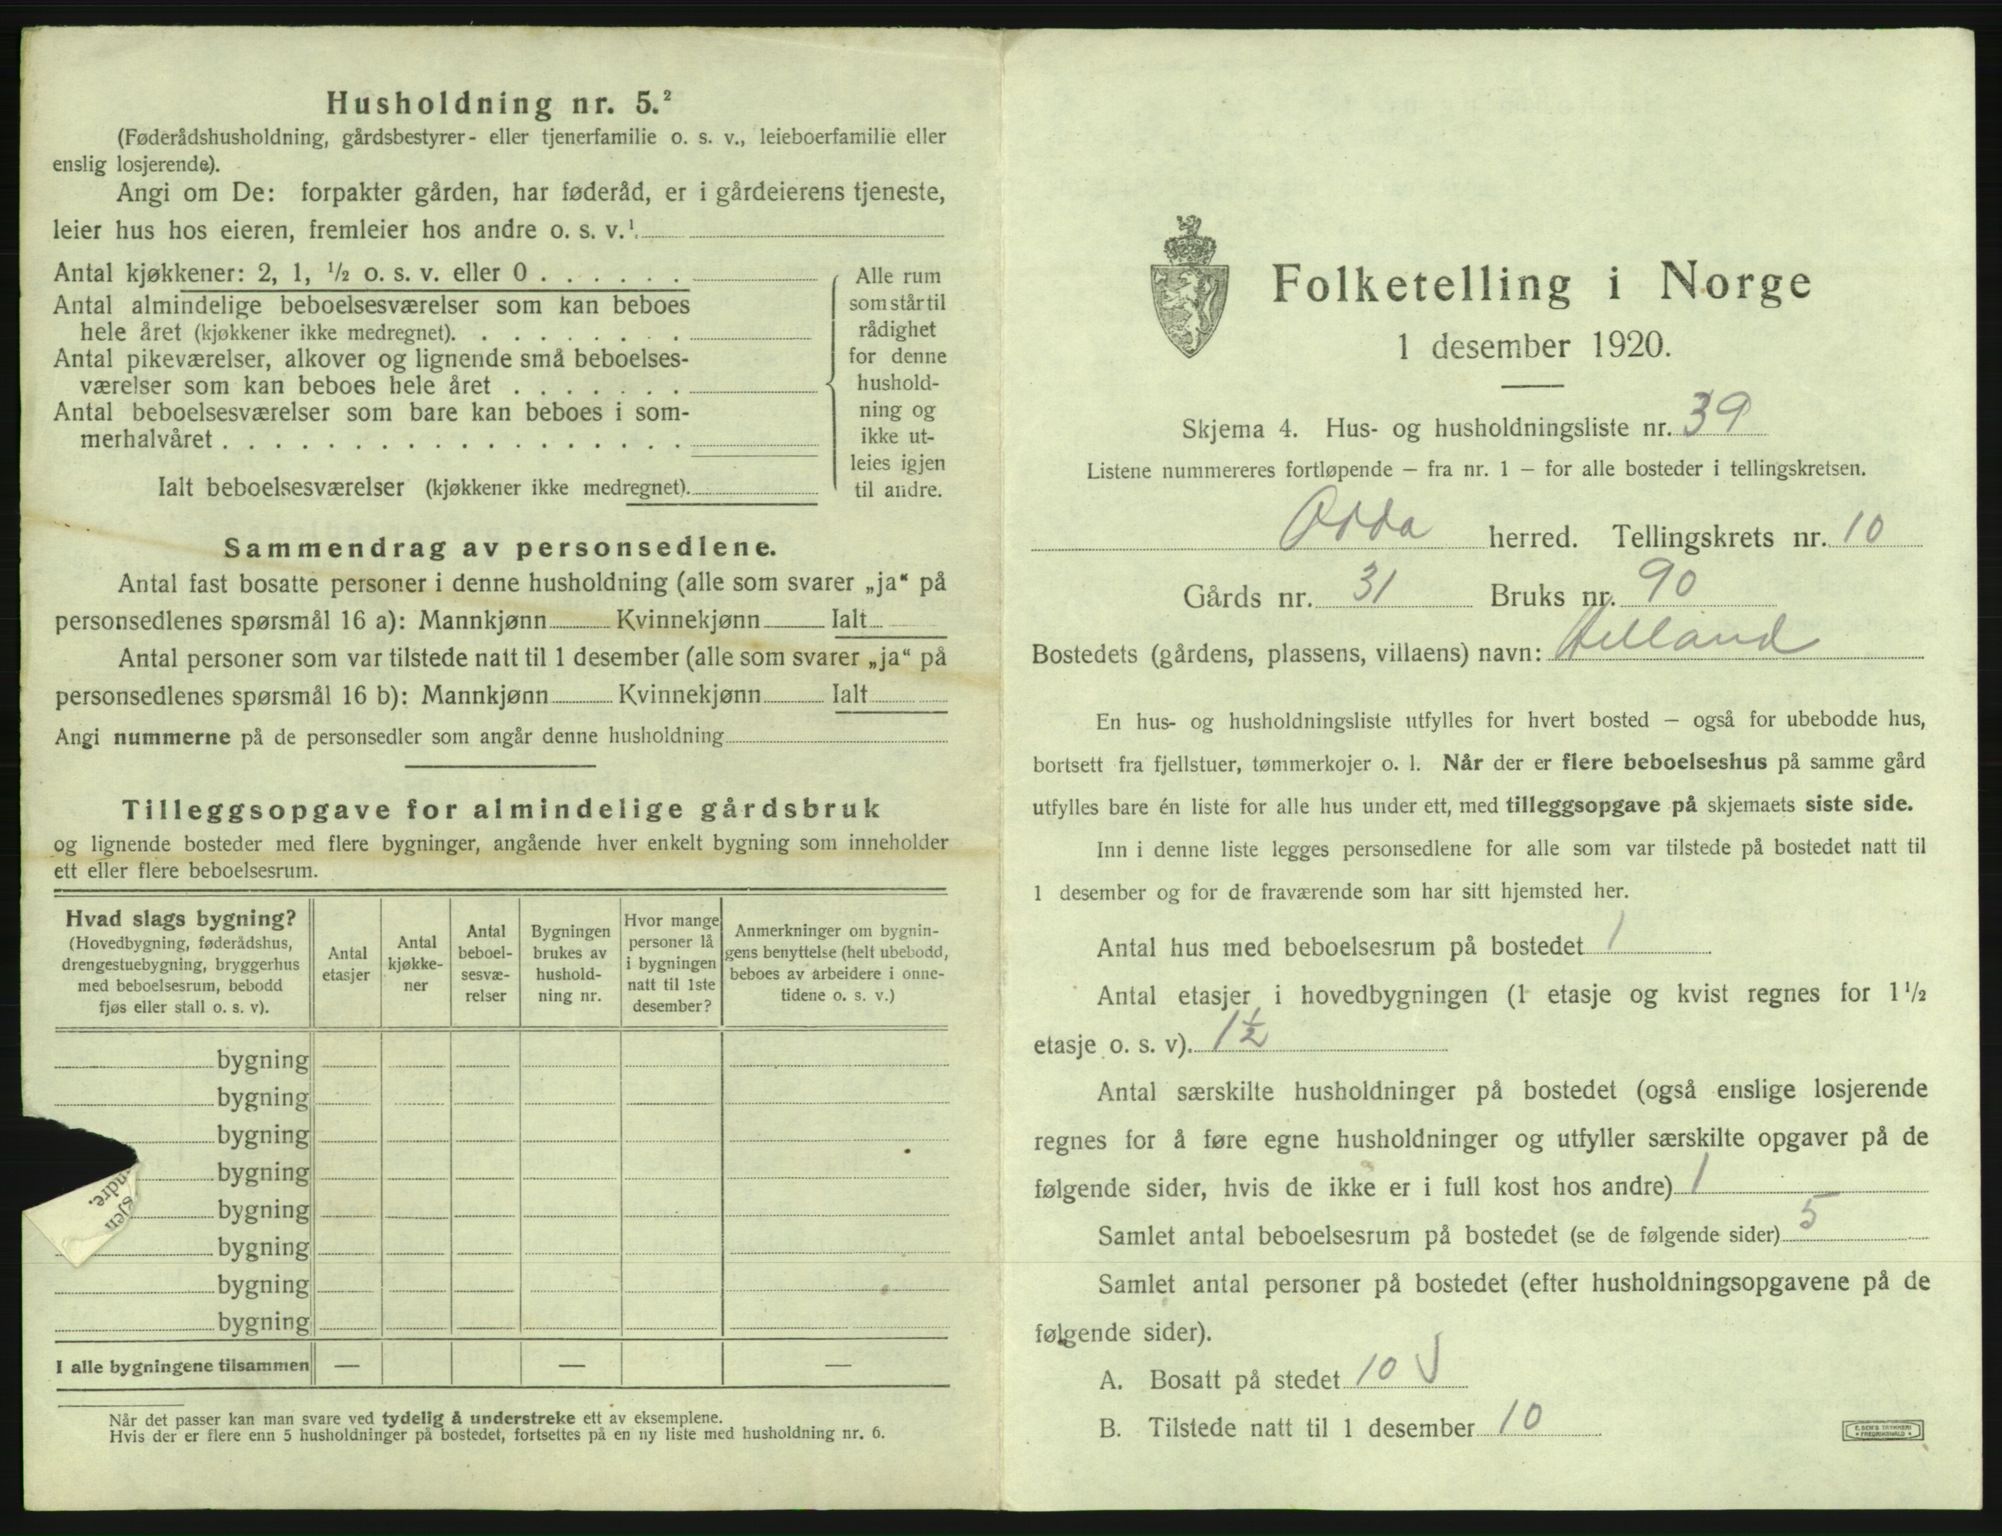 Husholdning nr. 5.²
(Føderådshusholdning, gårdsbestyrer- eller tjenerfamilie o. s. v., leieboerfamilie eller
enslig losjerende).
Angi om De: forpakter gården, har føderåd, er i gårdeierens tjeneste,
leier hus hos eieren, fremleier hos andre o. s. v.¹
Antal kjøkkener: 2, 1, ½ o. s. v. eller 0
Antal almindelige beboelsesværelser som kan beboes
hele året (kjøkkener ikke medregnet).
Antal pikeværelser, alkover og lignende små beboelses-
værelser som kan beboes hele året
Antal beboelsesværelser som bare kan beboes i som-
merhalvåret
Ialt beboelsesværelser (kjøkkener ikke medregnet).
Alle rum
som står til
rådighet
for denne
hushold-
ning og
ikke ut-
leies igjen
til andre.
Sammendrag av personsedlene.
Antal fast bosatte personer i denne husholdning (alle som svarer „ja“ på
personsedlenes spørsmål 16 a): Mannkjønn Kvinnekjønn Ialt
Antal personer som var tilstede natt til 1 desember (alle som svarer „ja“ på
personsedlenes spørsmål 16 b): Mannkjønn Kvinnekjønn Ialt
Angi nummerne på de personsedler som angår denne husholdning
Tilleggsopgave for almindelige gårdsbruk
og lignende bosteder med flere bygninger, angående hver enkelt bygning som inneholder
ett eller flere beboelsesrum.
Hvad slags bygning?
(Hovedbygning, føderådshus,
drengestuebygning, bryggerhus
med beboelsesrum, bebodd
fjøs eller stall o. s. v).
Antal
etasjer
Antal
kjøkke-
ner
Antal
beboel-
sesvæ-
relser
Bygningen
brukes av
hushold-
ning nr.
Hvor mange
personer lå
i bygningen
natt til 1ste
desember?
Anmerkninger om bygnin-
gens benyttelse (helt ubebodd,
beboes av arbeidere i onne-
tidene o. s. v.)
bygning
bygning
bygning
bygning
bygning
bygning
bygning
bygning
I alle bygningene tilsammen — — —
gjen
ndre.
Når det passer kan man svare ved tydelig å understreke ett av eksemplene.
Hvis der er flere enn 5 husholdninger på bostedet, fortsettes på en ny liste med husholdning nr. 6.
Folketelling i Norge
1 desember 1920.
Skjema 4. Hus- og husholdningsliste nr. 39
Listene nummereres fortløpende — fra nr. 1 — for alle bosteder i tellingskretsen.
Odda herred. Tellingskrets nr. 10
Gårds nr. 31 Bruks nr. 90
Bostedets (gårdens, plassens, villaens) navn: Helland
En hus- og husholdningsliste utfylles for hvert bosted — også for ubebodde hus,
bortsett fra fjellstuer, tømmerkojer o. l. Når der er flere beboelseshus på samme gård
utfylles bare én liste for alle hus under ett, med tilleggsopgave på skjemaets siste side.
Inn i denne liste legges personsedlene for alle som var tilstede på bostedet natt til
1 desember og for de fraværende som har sitt hjemsted her.
Antal hus med beboelsesrum på bostedet 1
Antal etasjer i hovedbygningen (1 etasje og kvist regnes for 1½
etasje o. s. v). 1½
Antal særskilte husholdninger på bostedet (også enslige losjerende
regnes for å føre egne husholdninger og utfyller særskilte opgaver på de
følgende sider, hvis de ikke er i full kost hos andre) 1
Samlet antal beboelsesrum på bostedet (se de følgende sider) 5
Samlet antal personer på bostedet (efter husholdningsopgavene på de
følgende sider).
A. Bosatt på stedet 10 √
B. Tilstede natt til 1 desember 10